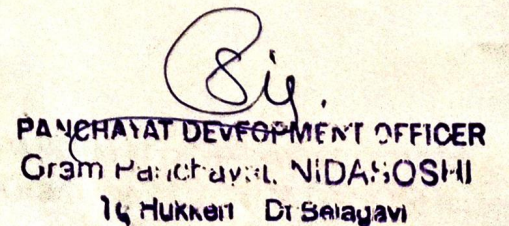 PANCHAYAT DEVEOPMENT OFFICER
Gram Panchayat, NIDASOSHI
Tq Hukkeri Dt Belagavi